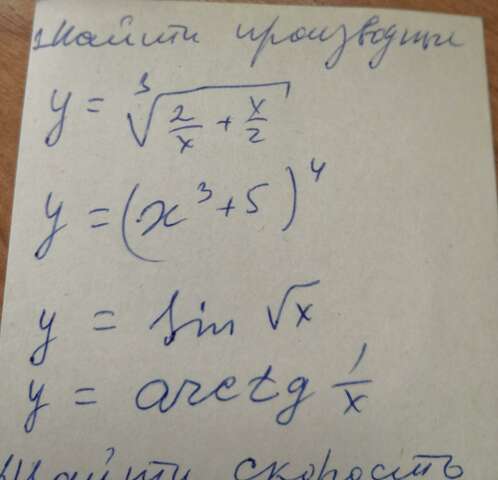 1. Найти производные
y = ∛(2/x + x/2)
y = (x³+5)⁴
y = sin √x
y = arctg 1/x
Найти скорость